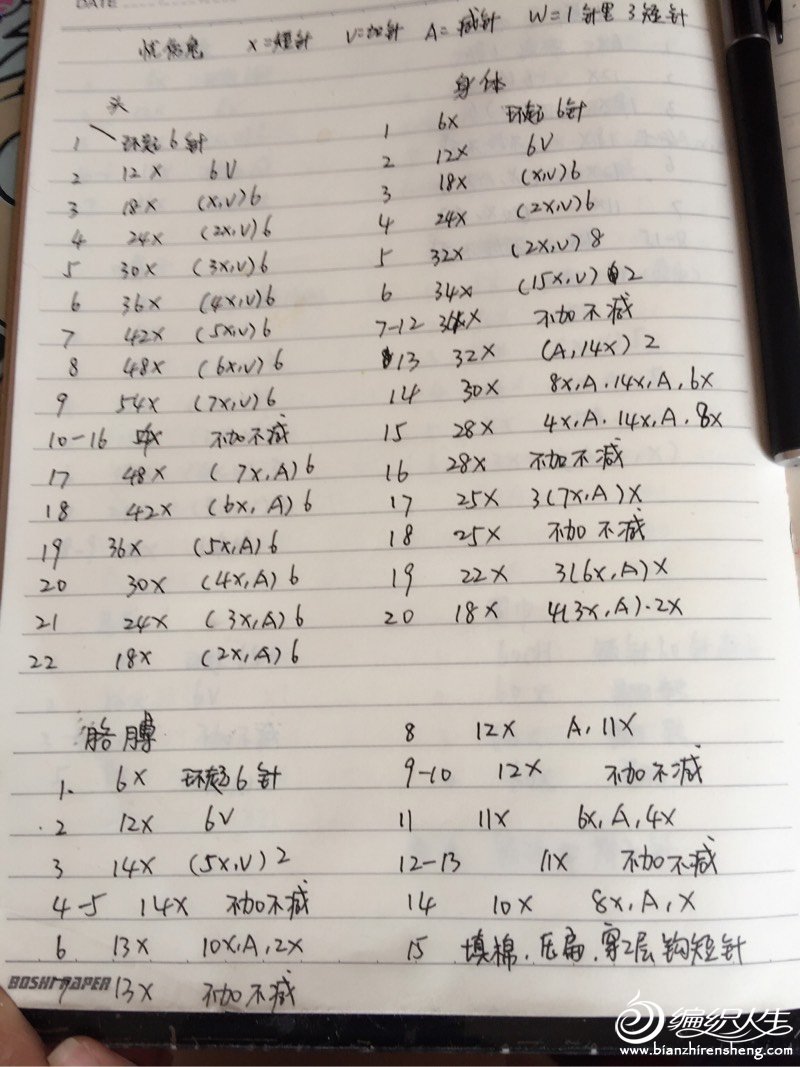 DATE
忧伤兔 X=短针 V=加针 A=减针 W=1针里3短针
头
1 环起6针
2 12X 6V
3 18X (X,V)6
4 24X (2X,V)6
5 30X (3X,V)6
6 36X (4X,V)6
7 42X (5X,V)6
8 48X (6X,V)6
9 54X (7X,V)6
10-16 54X 不加不减
17 48X (7X,A)6
18 42X (6X,A)6
19 36X (5X,A)6
20 30X (4X,A)6
21 24X (3X,A)6
22 18X (2X,A)6
身体
1 6X 环起6针
2 12X 6V
3 18X (X,V)6
4 24X (2X,V)6
5 32X (2X,V)8
6 34X (15X,V)2
7-12 34X 不加不减
13 32X (A,14X)2
14 30X 8X,A.14X,A,6X
15 28X 4X,A.14X,A,8X
16 28X 不加不减
17 25X 3(7X,A)X
18 25X 不加不减
19 22X 3(6X,A)X
20 18X 4(3X,A).2X
胳膊
1. 6X 环起6针
2 12X 6V
3 14X (5X,V)2
4-5 14X 不加不减
6 13X 10X,A,2X
7 13X 不加不减
8 12X A,11X
9-10 12X 不加不减
11 11X 6X,A,4X
12-13 11X 不加不减
14 10X 8X,A,X
15 填棉.压扁.穿2层钩短针
BOSHI PAPER
编织人生
www.bianzhirensheng.com